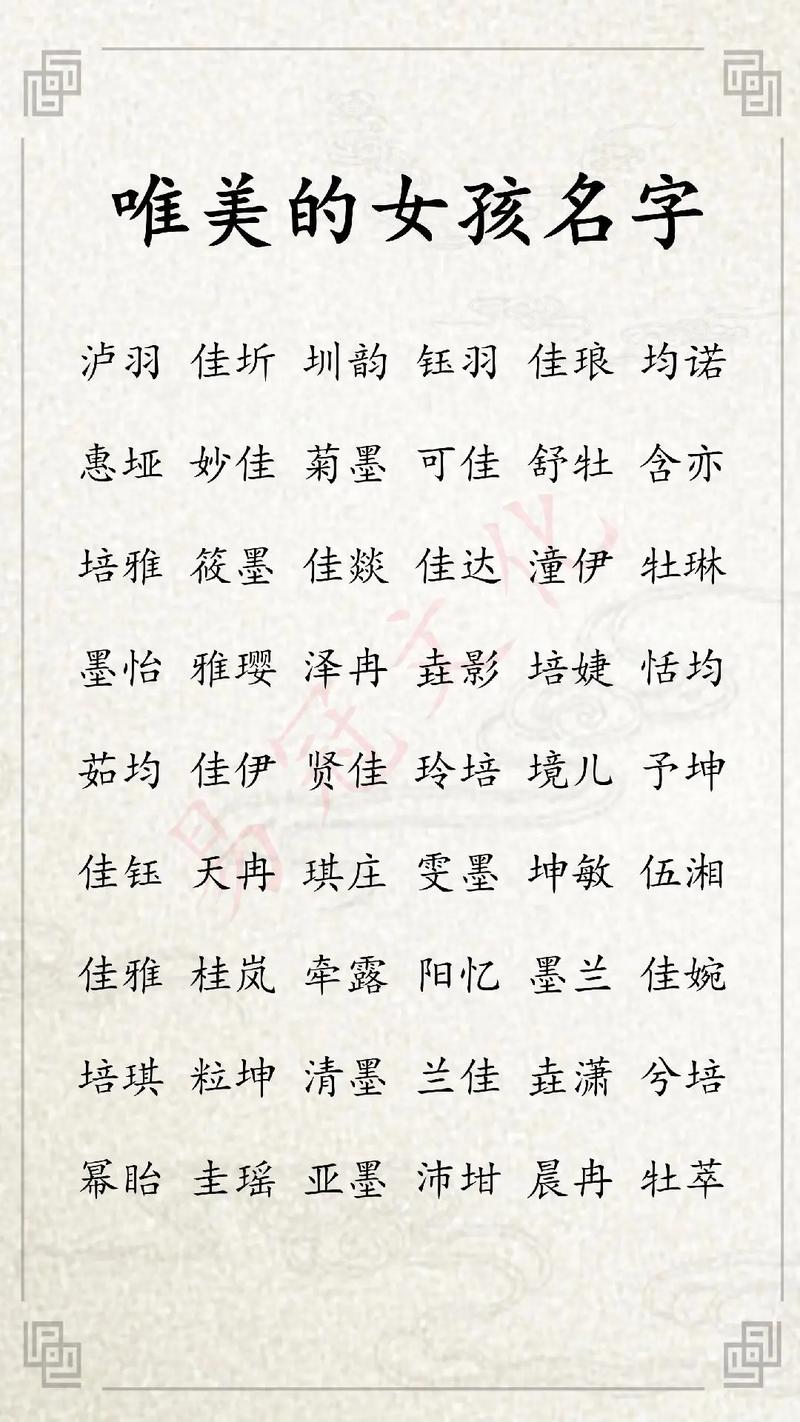 唯美的女孩名字
泸羽 佳圻 圳韵 钰羽 佳琅 均诺
惠垭 妙佳 菊墨 可佳 舒牡 含亦
培雅 筱墨 佳燚 佳达 潼伊 牡琳
墨怡 雅璎 泽冉 垚影 培婕 恬均
茹均 佳伊 贤佳 玲培 境儿 予坤
佳钰 天冉 琪庄 雯墨 坤敏 伍湘
佳雅 桂岚 牵露 阳忆 墨兰 佳婉
培琪 粒坤 清墨 兰佳 垚潇 兮培
幂眙 圭瑶 亚墨 沛坩 晨冉 牡萃
易冠文化